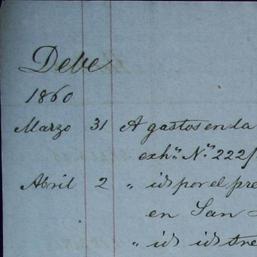 Debe
1860
Marzo 31 A gastos en la
exhn. No. 222/
Abril 2 " id por el pre
en San
" id id tre